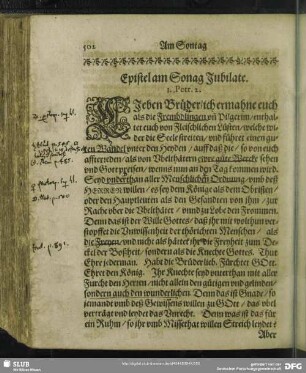 502 Am Sontag
Epistel am Sonag Jubilate.
1. Petr. 2.
LJeben Brüder / ich ermahne euch
als die Frembdlingen vñ Pilgerim / enthal-
tet euch von Fleischlichen Lüsten / welche wi-
der die Seele streiten / vnd führet einen gu-
ten Wandel vnter den Heyden / auff daß die / so von euch
affterreden / als von Vbelthätern / ewre gute Werck sehen
vnd Gott preisen / wenns nun an den Tag kommen wird.
Seyd vnderthan aller Menschlichen Ordnung / vmb deß
HERREN willen / es sey dem Könige als dem Obristen /
oder den Hauptleuten als den Gesandten von ihm / zur
Rache vber die Vbelthäter / vnnd zu Lobe den Frommen.
Denn das ist der Wille Gottes / daß ihr mit wolthun ver-
stopffet die Vnwissenheit der thörichten Menschen / als
die Freyen / vnd nicht als hättet ihr die Freyheit zum De-
ckel der Boßheit / sondern als die Knechte Gottes. Thut
Ehre jederman. Habt die Brüder lieb. Fürchtet GOtt.
Ehret den König. Ihr Knechte seyd vnterthan mit aller
Furcht den Herren / nicht allein den gütigen vnd gelinden /
sondern auch den wunderlichen. Denn das ist Gnade / so
jemand vmb deß Gewissens willen zu GOtt / das vbel
verträgt vnd leydet das Vnrecht. Denn was ist das für
ein Ruhm / so ihr vmb Missethat willen Streich leydet?
Aber
SLUB